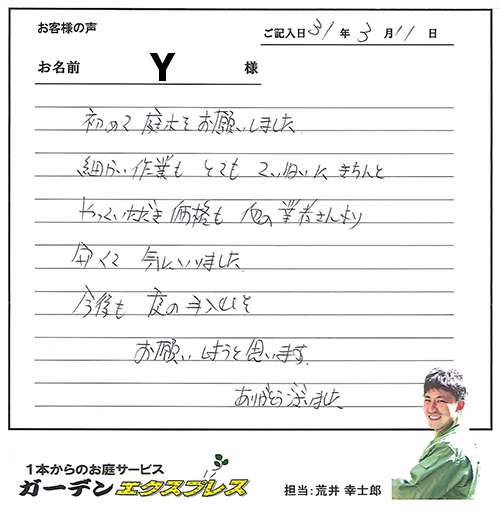 お客様の声
ご記入日 31 年 3 月 11 日
お名前 Y 様
初めて庭木をお願いしました
細かい作業も とても ていねいに きちんと
やっていただき 価格も 他の業者さんより
安くて 気にいりました
今後も 庭の手入れを
お願いしようと思います。
ありがとう ございました
1本からのお庭サービス
ガーデンエクスプレス
担当:荒井 幸士郎